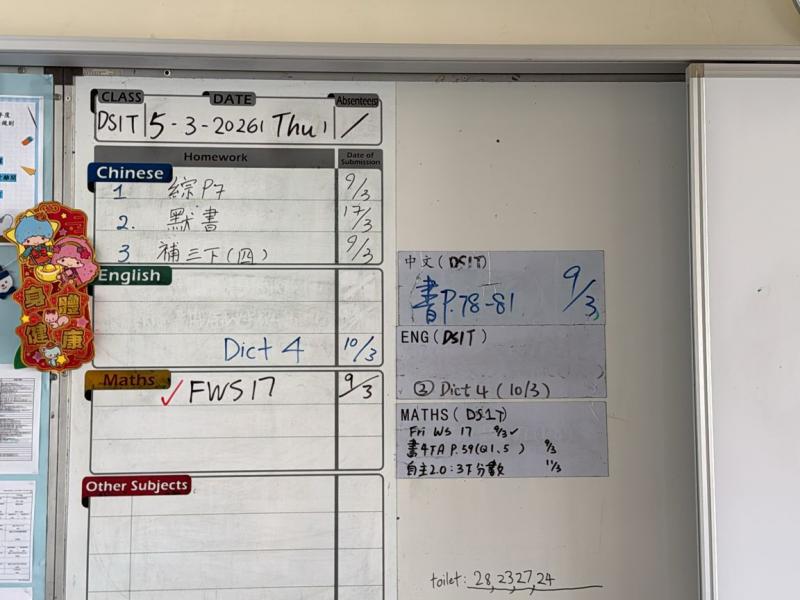 CLASS DATE Absentees
DSIT 5-3-2026 Thu /
Homework Date of Submission
Chinese
1 綜P7 9/3
2. 默書 17/3
3 補三下(四) 9/3
English
Dict 4 10/3
Maths
✓ FWS17 9/3
Other Subjects
中文(DSIT)
書P.78-81 9/3
ENG(DSIT)
② Dict 4 (10/3)
MATHS(DSIT)
Fri WS 17 9/3 ✓
書4TA P.59(Q1.5) 9/3
自主2.0:3下分數 11/3
toilet: 28,23,27,24
身體健康